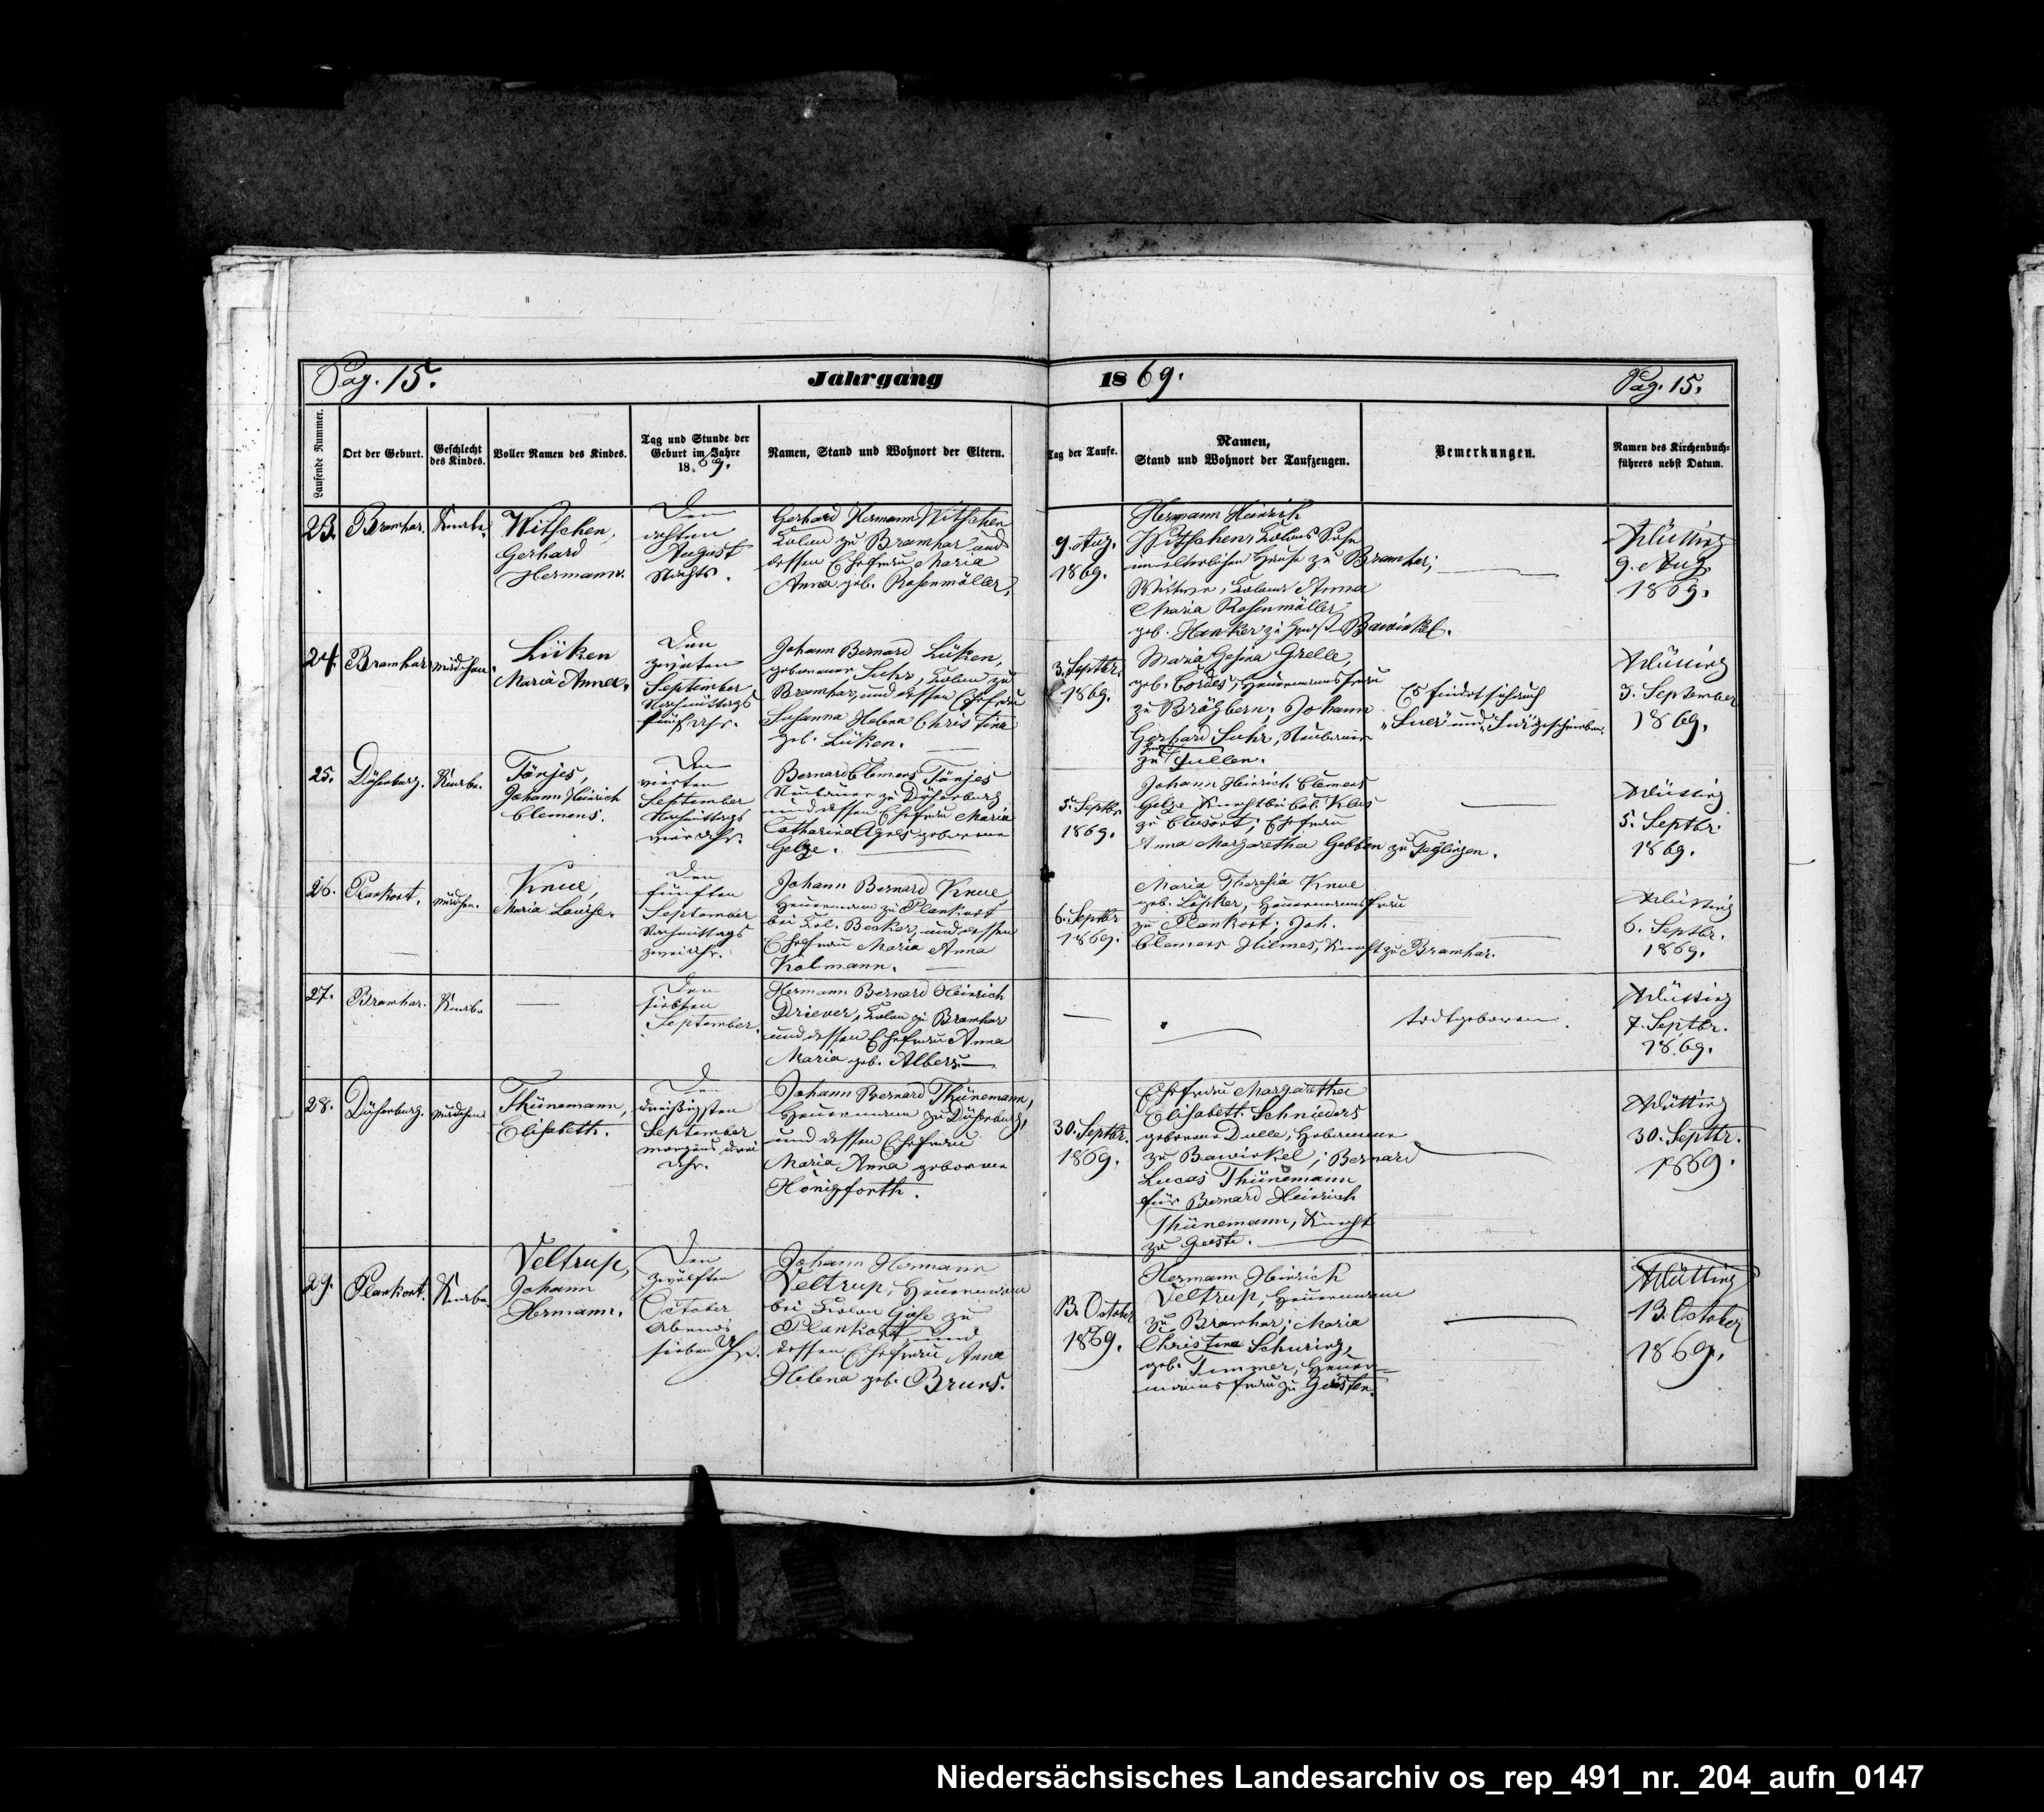 Pag. 15.
Jahrgang
1869.
Pag. 15.
Laufende Nummer.
Ort der Geburt.
Geschlecht
des Kindes.
Voller Namen des Kindes.
Tag und Stunde der
Geburt im Jahre
1869.
Namen, Stand und Wohnort der Eltern.
Tag der Taufe.
Namen,
Stand und Wohnort der Taufzeugen.
Bemerkungen.
Namen des Kirchenbuch-
führers nebst Datum.
23.
Bramhar.
Knabe.
Witschen,
Gerhard
Hermann.
Den
achten
August
Nachts.
Gerhard Hermann Witschen
Colon zu Bramhar und
dessen Ehefrau Maria
Anna geb. Rosenmöller.
9. Aug.
1869.
Hermann Heinrich
Witschen, Colons Sohn
im elterlichen Hause zu Bramhar;
Witwe, Colons Anna
Maria Rosenmöller
geb. Hanker zu Bawinkel.
9. Aug.
1869.
24.
Bramhar
Mädchen.
Lüken
Maria Anna.
Den
zweiten
September
Nachmittags
fünf Uhr.
Johann Bernard Lüken,
geborener Suhr, Colon zu
Bramhar, und dessen Ehefrau
Susanna Helena Christina
geb. Lüken.
3. Septbr.
1869.
Maria Gesina Grelle,
geb. Cordes, Heuermanns Frau
zu Brögbern; Johann
Gerhard Suhr, Neubauer
zu Fullen.
Es findet sich auch
3. September
1869.
25.
Knabe.
Tönjes,
Johann Heinrich
Clemens.
Den
vierten
September
Nachmittags
vier Uhr.
Bernard Clemens Tönjes
Neubauer zu
und dessen Ehefrau Maria
Catharina Agnes geborene
Gelze.
5. Septbr.
1869.
Johann Heinrich Clemens
Gelze Knecht bei Col. Klus
zu Clusort; Ehefrau
Anna Margaretha Gebben zu Teglingen.
5. Septbr.
1869.
26.
Plankort.
Mädchen.
Knue,
Maria Louise.
Den
fünften
September
Nachmittags
zwei Uhr.
Johann Bernard Knue
Heuermann zu Plankort
bei Col. Becker, und dessen
Ehefrau Maria Anna
Kolmann.
6. Septbr.
1869.
Maria Theresia Knue
geb. Löpker, Heuermanns Frau
zu Plankort; Joh.
Clemens Hilmes, Knecht zu Bramhar.
6. Septbr.
1869.
27.
Bramhar.
Knabe
Den
siebten
September.
Hermann Bernard Heinrich
Driever, Colon zu Bramhar
und dessen Ehefrau Anna
Maria geb. Albers.
todtgeboren.
7. Septbr.
1869.
28.
Mädchen.
Thünemann,
Elisabeth.
Den
dreißigsten
September
morgens drei
Uhr.
Johann Bernard Thünemann,
Heuermann zu
und dessen Ehefrau
Maria Anna geborene
Hönigforth.
30. Septbr.
1869.
Ehefrau Margaretha
Elisabeth Schnieders
geborene Dulle, Hebamme
zu Bawinkel; Bernard
Lucas Thünemann
für Bernard Heinrich
Thünemann, Knecht
zu Geeste.
30. Septbr.
1869.
29.
Plankort.
Knabe.
Veltrup,
Johann
Hermann.
Den
zwölften
October
Abends
sieben Uhr.
Johann Hermann
Veltrup, Heuermann
bei Colon Giese zu
Plankort, und
dessen Ehefrau Anna
Helena geb. Bruns.
13. October
1869.
Hermann Heinrich
Veltrup, Heuermann
zu Bramhar; Maria
Christina Schuring,
geb. Timmer, Heuer-
manns Frau zu Geesten.
13. October
1869.
Niedersächsisches Landesarchiv os_rep_491_nr._204_aufn_0147